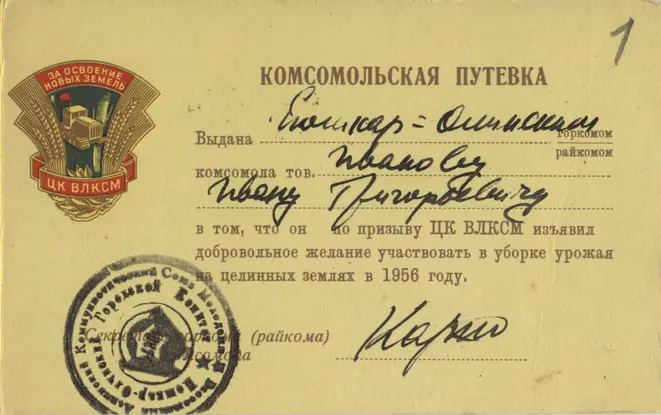 1
ЗА ОСВОЕНИЕ
НОВЫХ ЗЕМЕЛЬ
ЦК ВЛКСМ
КОМСОМОЛЬСКАЯ ПУТЕВКА
Выдана Йошкар-Олинским горкомом
райкомом
комсомола тов. Иванову
Ивану Григорьевичу
в том, что он по призыву ЦК ВЛКСМ изъявил
добровольное желание участвовать в уборке урожая
на целинных землях в 1956 году.
Секретарь горкома (райкома)
комсомола
Ленинский Коммунистический Союз Молодежи
Йошкар-Олинский Городской Комитет